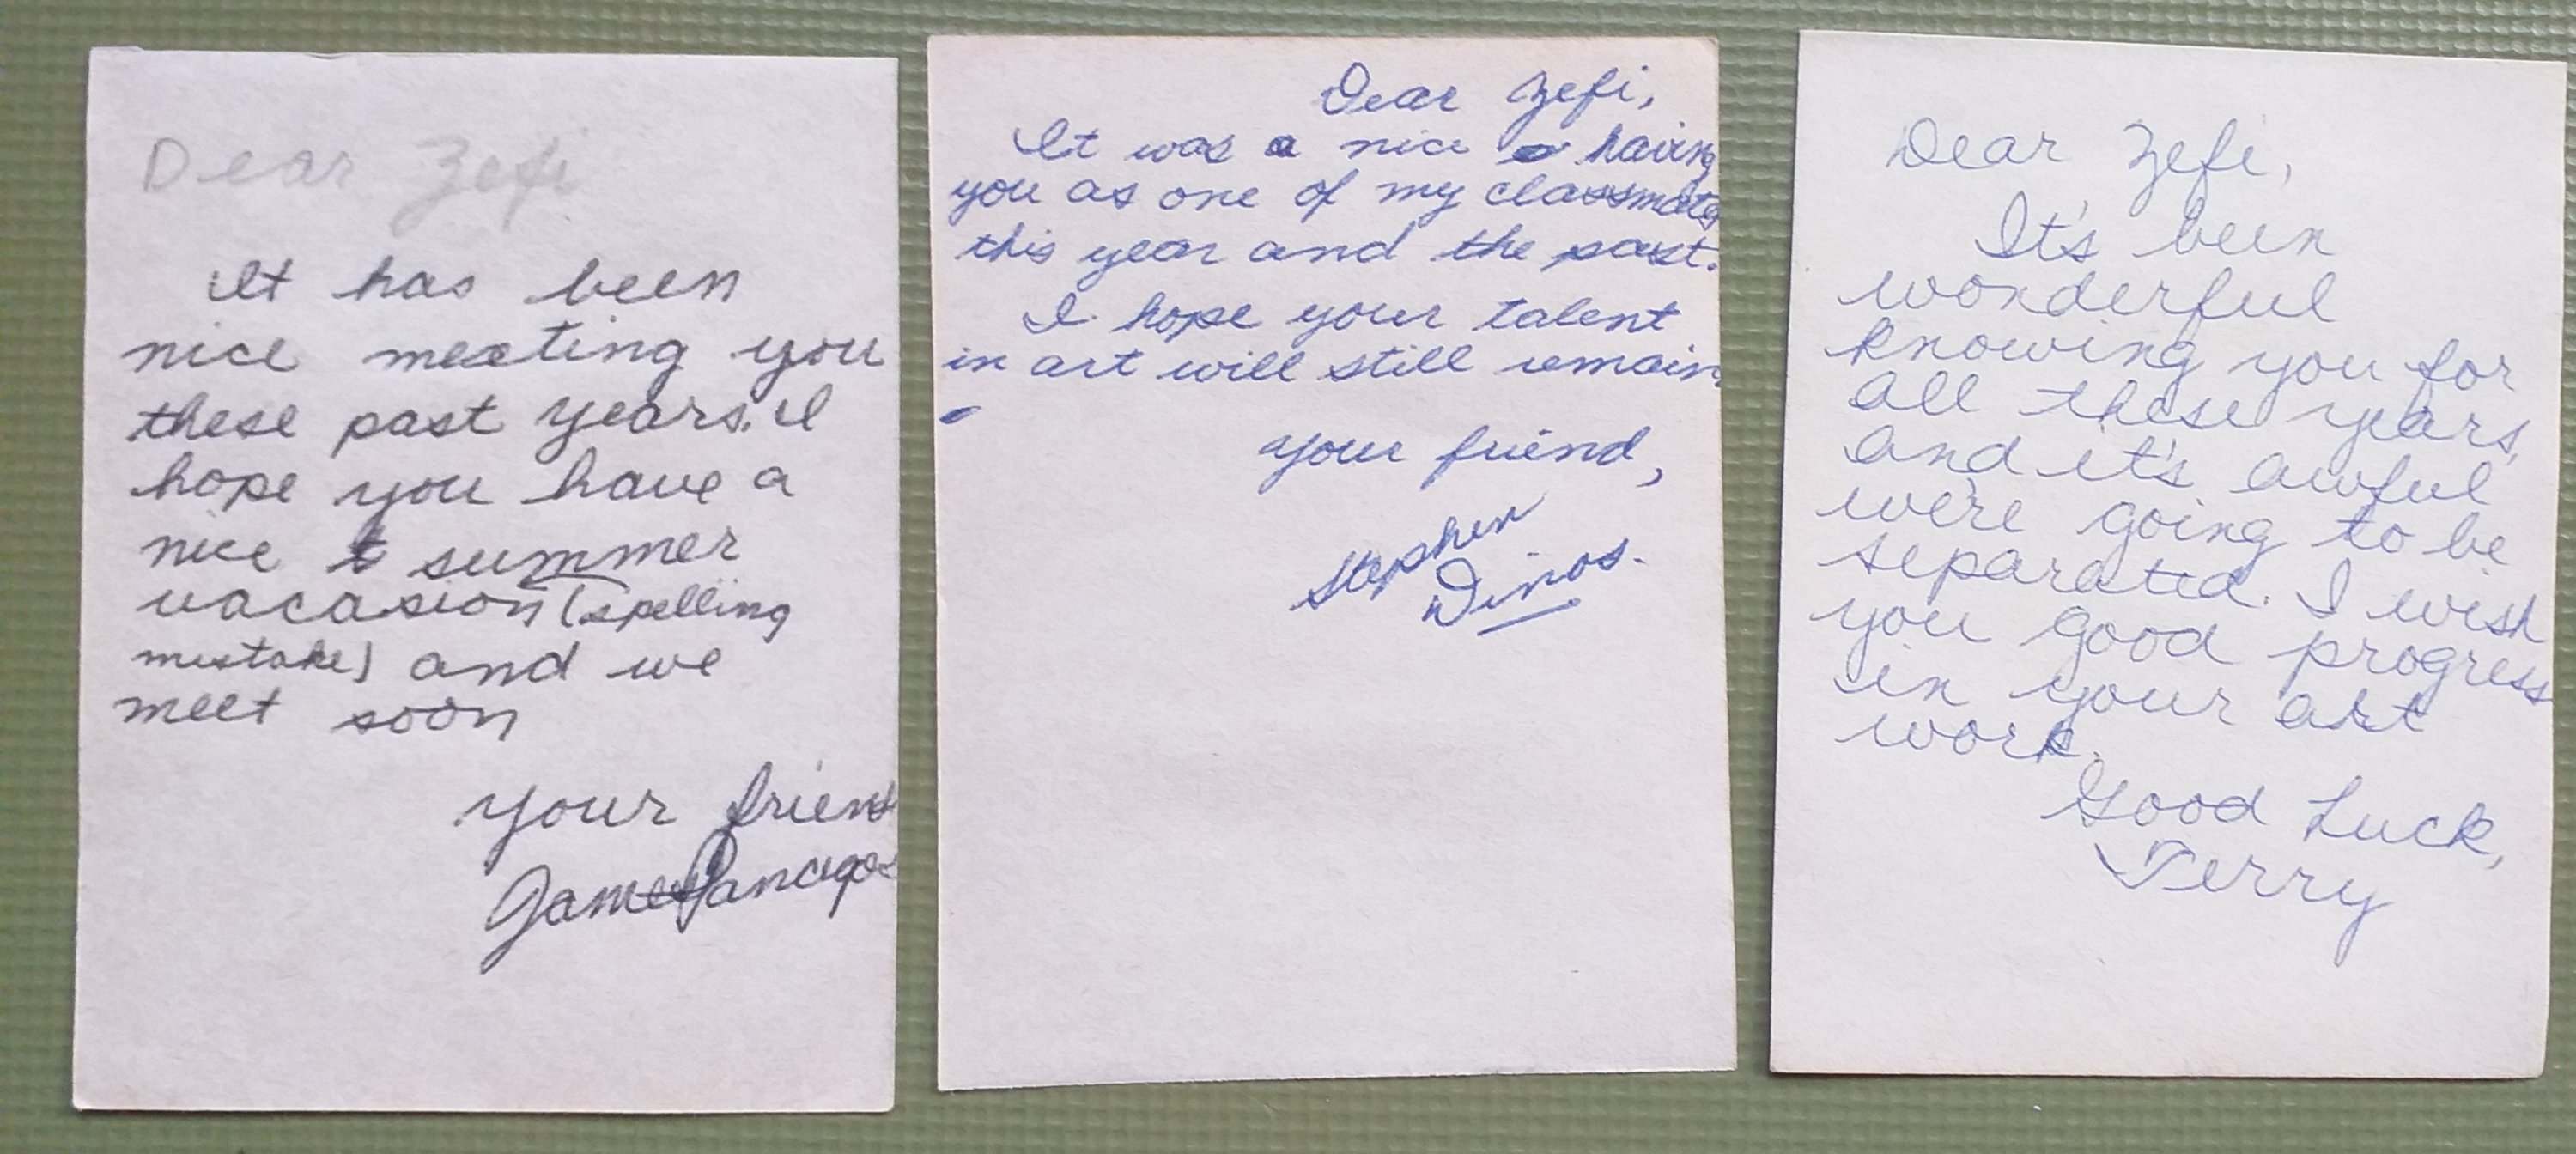 Dear Zefi
It has been
nice meeting you
these past years. I
hope you have a
nice t summer
vacasion (spelling
mistake) and we
meet soon
your friend
James Panagos
Dear Zefi,
It was a nice having
you as one of my classmates
this year and the past.
I hope your talent
in art will still remain
your friend,
Stephen
Dinos.
Dear Zefi,
It's been
wonderful
knowing you for
all these years,
and it's awful
we're going to be
separated. I wish
you good progress
in your art
work.
Good Luck,
Terry